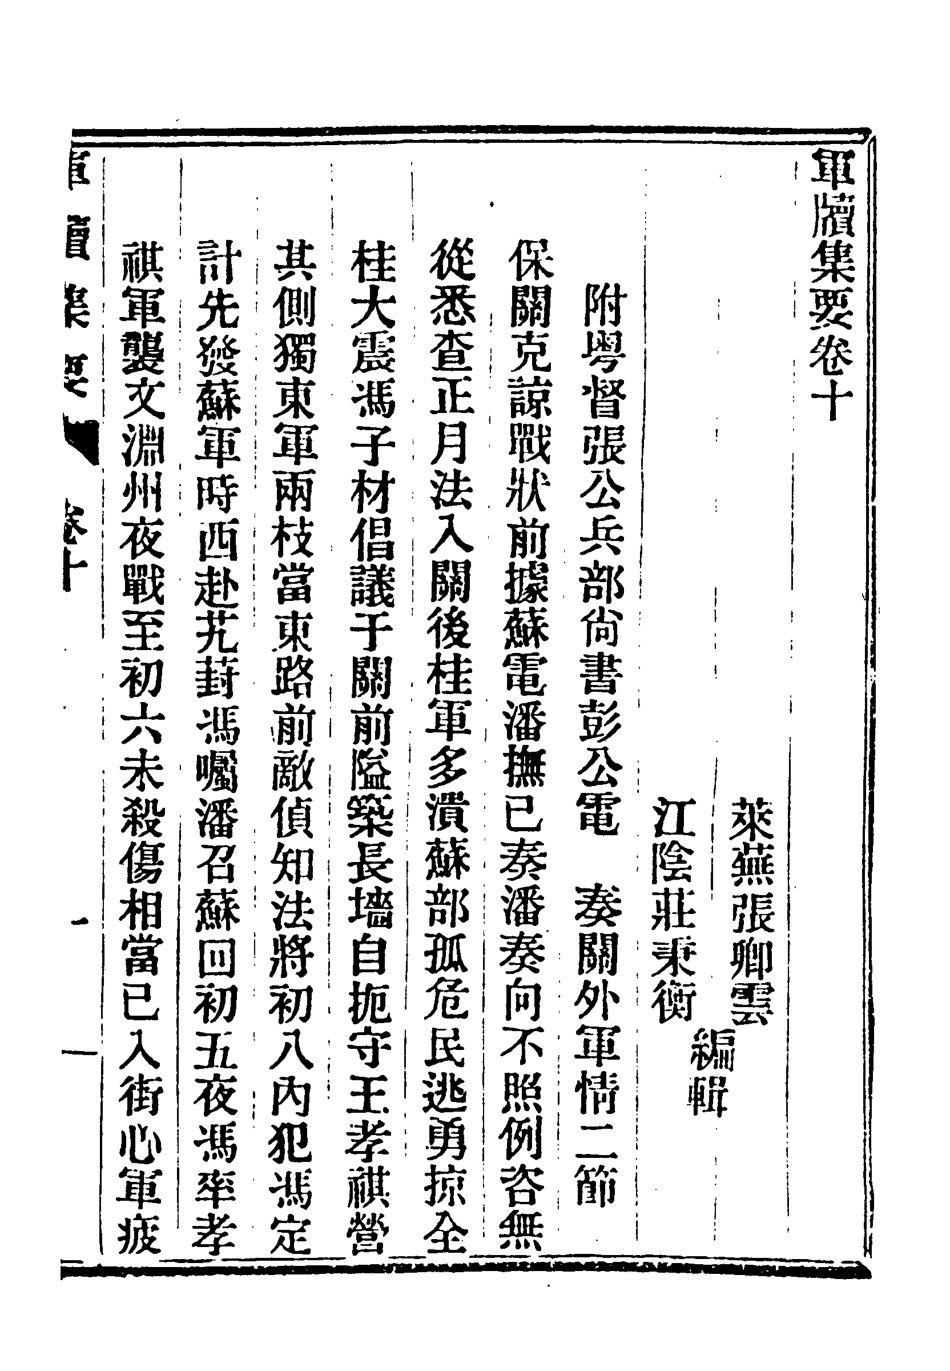 軍牘集要卷十
萊蕪張卿雲
江陰莊秉衡
編輯
附粤督張公兵部尙書彭公電　奏關外軍情二節
保關克諒戰狀前據蘇電潘撫已奏潘奏向不照例咨無
從悉查正月法入關後桂軍多潰蘇部孤危民逃勇掠全
桂大震馮子材倡議于關前隘築長墻自扼守王孝祺營
其側獨東軍兩枝當東路前敵偵知法將初八內犯馮定
計先發蘇軍時西赴艽葑馮囑潘召蘇回初五夜馮率孝
祺軍襲文淵州夜戰至初六未殺傷相當已入街心軍疲
軍牘集要　卷十　一